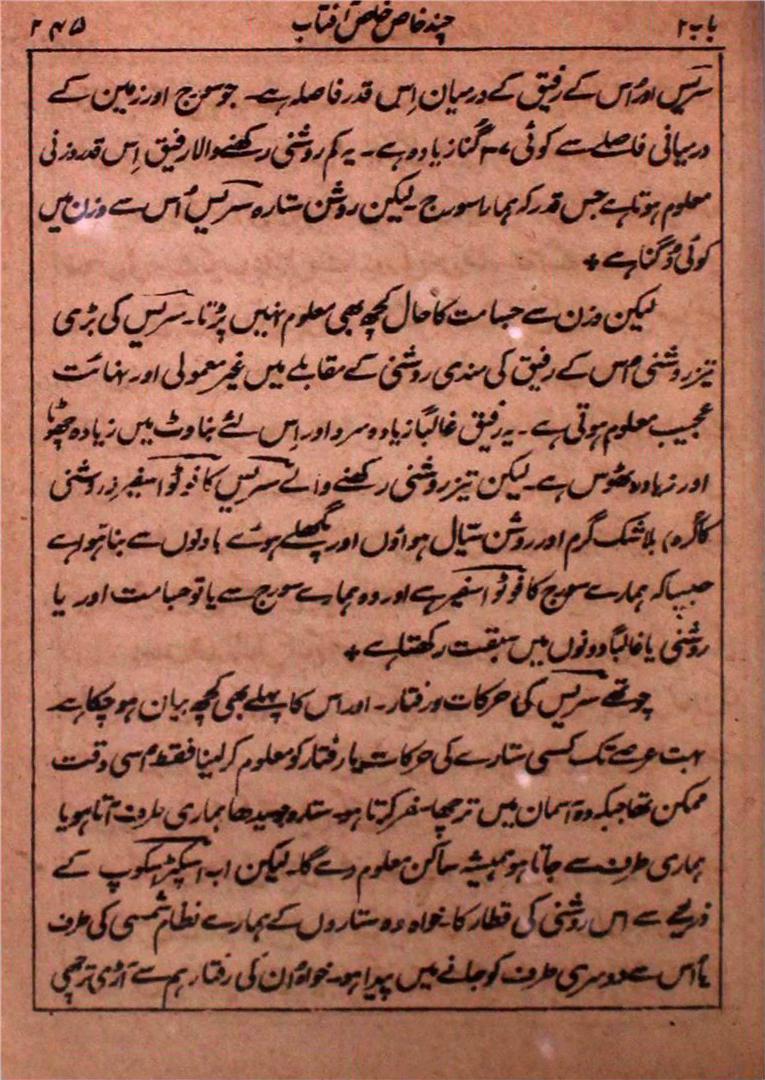 باب ۲ چند خاص خاص آفتاب ۲۴۵
سریس اور اُس کے رفیق کے درمیان اِس قدر فاصلہ ہے۔ جو سورج اور زمین کے
درمیانی فاصلے سے کوئی ۳۷ گنا زیادہ ہے۔ یہ کم روشنی رکھنے والا رفیق اِس قدر وزنی
معلوم ہوتا ہے جس قدر کہ ہمارا سورج۔ لیکن روشن ستارہ سریس اُس سے وزن میں
کوئی دُگنا ہے +
لیکن وزن سے جسامت کا حال کچھ بھی معلوم نہیں پڑتا۔ سریس کی بڑی
تیز روشنی اُس کے رفیق کی مندی روشنی کے مقابلے میں غیر معمولی اور نہائت
عجیب معلوم ہوتی ہے۔ یہ رفیق غالباً زیادہ سرد اور اِس لئے بناوٹ میں زیادہ چھوٹا
اور زیادہ ٹھوس ہے۔ لیکن تیز روشنی رکھنے والے سریس کا فوٹو اسفیر (روشنی
کا کُرہ) بلاشک گرم اور روشن سیّال ہواؤں اور پگھلے ہوئے بادلوں سے بنا ہوا ہے
جیسا کہ ہمارے سورج کا فوٹو اسفیر ہے اور وہ ہمارے سورج سے یا تو جسامت اور یا
روشنی یا غالباً دونوں میں سبقت رکھتا ہے +
چوتھے سریس کی حرکات و رفتار۔ اور اس کا پہلے بھی کچھ بیان ہو چکا ہے
بہت عرصے تک کسی ستارے کی حرکات یا رفتار کو معلوم کر لینا فقط اُسی وقت
ممکن تھا جبکہ وہ آسمان میں ترچھا سفر کرتا ہو۔ ستارہ جو سیدھا ہماری طرف آتا ہو یا
ہماری طرف سے جاتا ہو ہمیشہ ساکن معلوم دے گا۔ لیکن اب اسپکٹرسکوپ کے
ذریعے سے اس روشنی کی قطار کا۔ خواہ وہ ستاروں کے ہمارے نظام شمسی کی طرف
یا اُس سے دوسری طرف کو جانے میں پیدا ہو۔ خواہ اُن کی رفتار ہم سے آڑی ترچھی